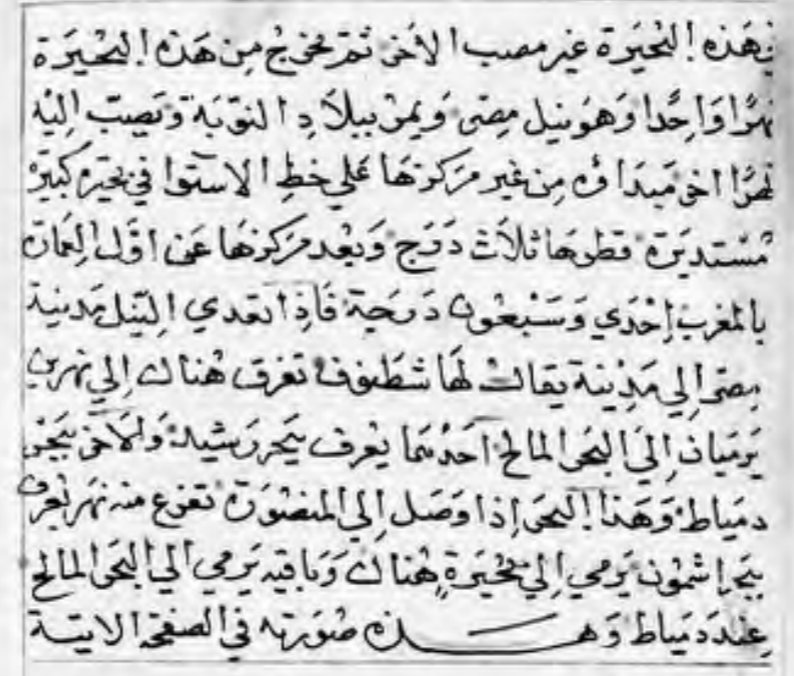 في هذه البحيرة غير مصب الاخر ثم تخرج من هذه البحيرة
نهرًا وَاحِدًا وَهو نيل مِصر وَيمر ببلَادِ النوبَة وَيصب اِليْه
نهرًا اخر مَبدَاؤه مِن غير مَركزهَا عَلي خطِ الاستوا في بحيرة كبيرَة
مُسْتديرَة قطرهَا ثلاَث دَرَج وَبعْد مركزهَا عَن اوّل العِمَارَة
بالمغرب اِحْدَي وَسَبْعُون دَرجة فَاِذا تعدي النيل مَدينة
مِصر اِلي مَدِينة يقال لهَا شطنوف تفرق هُناك اِلي نهرين
يَرميَان اِليَ البحر المالح احَدُهمَا يعْرف ببَحر رَشيد وَالاخر ببَحر
دميَاط وَهَذا البحر اِذا وَصَل اِلي المنصُورَة تفرع منه نهر يعْرف
ببَحر اشمُون يَرمي اِلي بُحَيرَةٍ هُناك وَبَاقيه يَرمي الي البحر المالح
عِندَ دميَاط وَهـــذه صُورَته في الصفحة الاتيــة